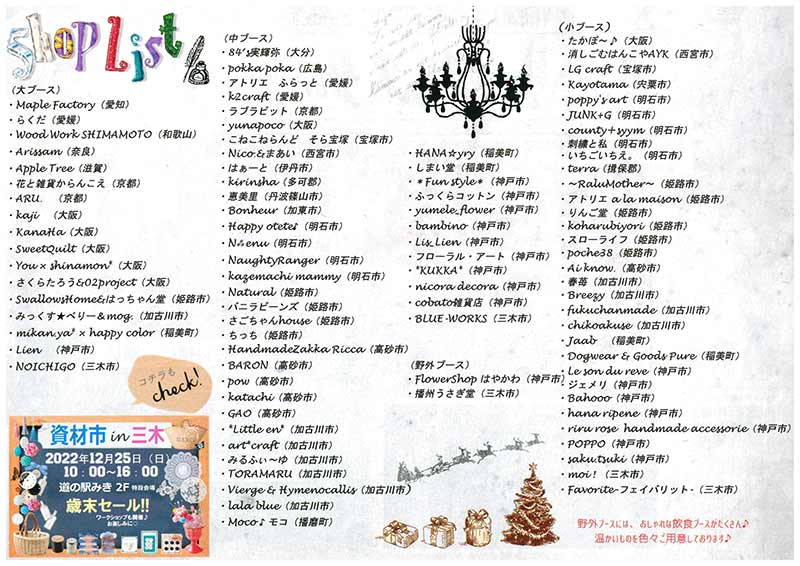 Shop List
(大ブース)
・Maple Factory（愛知）
・らくだ（愛媛）
・Wood Work SHIMAMOTO（和歌山）
・Arissam（奈良）
・Apple Tree（滋賀）
・花と雑貨からんこえ（京都）
・ARU.　（京都）
・kaji　（大阪）
・KanaHa（大阪）
・SweetQuilt（大阪）
・You × shinamon*（大阪）
・さくらたろう&02project（大阪）
・SwallowsHome&はっちゃん堂（姫路市）
・みっくす★べりー＆mog.（加古川市）
・mikan.ya* × happy color（稲美町）
・Lien　（神戸市）
・NOICHIGO（三木市）
コチラも
check!
資材市 in 三木
2022年12月25日（日）
10：00〜16：00
道の駅みき 2F 特設会場
歳末セール!!
ワークショップも開催♪
お楽しみに♡
(中ブース)
・84's実輝弥（大分）
・pokka poka（広島）
・アトリエ　ふらっと（愛媛）
・k2craft（愛媛）
・ラブラビット（京都）
・yunapoco（大阪）
・こねこねらんど　そら宝塚（宝塚市）
・Nico.&まあい（西宮市）
・はぁーと（伊丹市）
・kirinsha（多可郡）
・恵美里（丹波篠山市）
・Bonheur（加東市）
・Happy otete♪（明石市）
・N⁂enu（明石市）
・NaughtyRanger（明石市）
・kazemachi mammy（明石市）
・Natural（姫路市）
・バニラビーンズ（姫路市）
・さごちゃんhouse（姫路市）
・ちっち（姫路市）
・HandmadeZakka Ricca（高砂市）
・BARON（高砂市）
・pow（高砂市）
・katachi（高砂市）
・GAO（高砂市）
・*Little en*（加古川市）
・art*craft（加古川市）
・みるふぃ〜ゆ（加古川市）
・TORAMARU（加古川市）
・Vierge & Hymenocallis（加古川市）
・lala blue（加古川市）
・Moco♪モコ（播磨町）
・HANA☆yry（稲美町）
・しまい堂（稲美町）
・＊Fun style＊（神戸市）
・ふっくらコットン（神戸市）
・yumele_flower（神戸市）
・bambino（神戸市）
・Lis_Lien（神戸市）
・フローラル・アート（神戸市）
・*KUKKA*（神戸市）
・nicora decora（神戸市）
・cobato雑貨店（神戸市）
・BLUE-WORKS（三木市）
(野外ブース)
・FlowerShop はやかわ（神戸市）
・播州うさぎ堂（三木市）
(小ブース)
・たかぼ〜♪（大阪）
・消しごむはんこやAYK（西宮市）
・LG craft（宝塚市）
・Kayotama（宍粟市）
・poppy's art（明石市）
・JUNK+G（明石市）
・county＋syym（明石市）
・刺繍と私（明石市）
・いちごいちえ。（明石市）
・terra（揖保郡）
・〜RaluMother〜（姫路市）
・アトリエ a la maison（姫路市）
・りんご堂（姫路市）
・koharubiyori（姫路市）
・スローライフ（姫路市）
・poche38（姫路市）
・Ai know.（高砂市）
・春苺（加古川市）
・Breezy（加古川市）
・fukuchanmade（加古川市）
・chikoakuse（加古川市）
・Jaab　（稲美町）
・Dogwear & Goods Pure（稲美町）
・Le son du reve（神戸市）
・ジェメリ（神戸市）
・Bahooo（神戸市）
・hana ripene（神戸市）
・riru rose handmade accessorie（神戸市）
・POPPO（神戸市）
・saku.tsuki（神戸市）
・moi！（三木市）
・Favorite-フェイバリット-（三木市）
野外ブースには、おしゃれな飲食ブースがたくさん♪
温かいものを色々ご用意しております♪